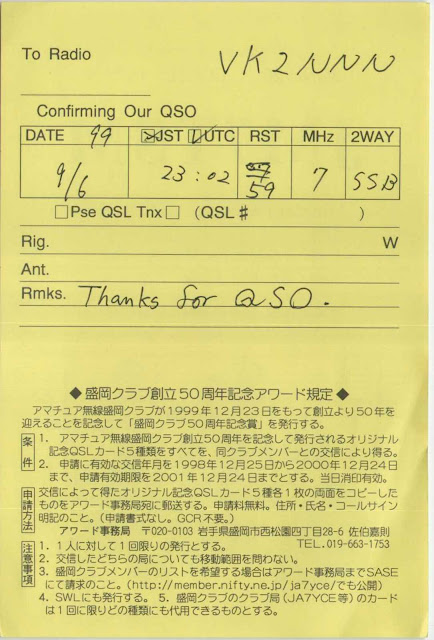 To Radio VK2NNN
Confirming Our QSO
DATE 99 JST UTC RST MHz 2WAY
9/6 23:02 59 7 SSB
□Pse QSL Tnx□ (QSL # )
Rig. W
Ant.
Rmks. Thanks for QSO.
◆ 盛岡クラブ創立50周年記念アワード規定 ◆
アマチュア無線盛岡クラブが1999年12月23日をもって創立より50年を
迎えることを記念して「盛岡クラブ50周年記念賞」を発行する。
条件
1. アマチュア無線盛岡クラブ創立50周年を記念して発行されるオリジナル
記念QSLカード5種類をすべてを、同クラブメンバーとの交信により得る。
2. 申請に有効な交信年月を1998年12月25日から2000年12月24日
まで、申請有効期限を2001年12月24日までとする。当日消印有効。
申請方法
交信によって得たオリジナル記念QSLカード5種各1枚の両面をコピーした
ものをアワード事務局宛に郵送する。申請料無料。住所・氏名・コールサイン
明記のこと。(申請書式なし。GCR不要。)
アワード事務局 〒020-0103 岩手県盛岡市西松園四丁目28-6 佐伯嘉則
TEL.019-663-1753
注意事項
1. 1人に対して1回限りの発行とする。
2. 交信したどちらの局についても移動範囲を問わない。
3. 盛岡クラブメンバーのリストを希望する場合はアワード事務局までSASE
にて請求のこと。(http://member.nifty.ne.jp/ja7yce/でも公開)
4. SWLにも発行する。 5. 盛岡クラブのクラブ局(JA7YCE等)のカード
は1回に限りどの種類にも代用できるものとする。